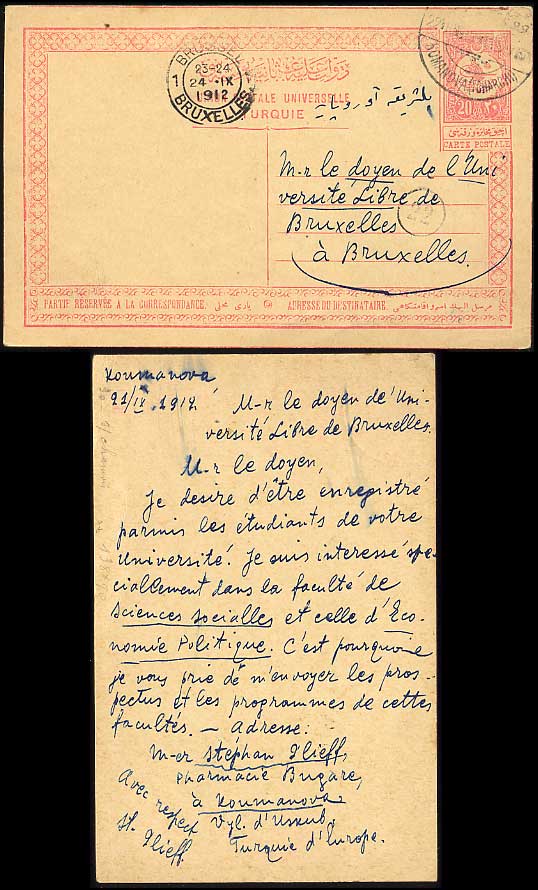 BRUXELLES
1
23-24
24 - IX
1912
BRUXELLES
TURQUIE
20
CARTE POSTALE
M-r le doyen de l'Uni
versité Libre de
Bruxelles
à Bruxelles.
22
PARTIE RÉSERVÉE A LA CORRESPONDANCE.
ADRESSE DU DESTINATAIRE.
Koumanova
21/IX.1912
M-r le doyen de'Uni-
versité Libre de Bruxelles.
M-r le doyen,
Je desire d'être enregistré
parmis les étudiants de votre
Université. Je suis interessé spe-
ciallement dans la faculté de
Sciences socialles et celle d'Eco-
nomie Politique. C'est pourquoi
je vous prie de m'envoyer les pros-
pectus et les programmes de cettes
facultés. — Adresse:
M-er Stéphan Ilieff,
pharmacie Bugare,
à Koumanova
Vyl. d'Uskub.
Turquie d'Europe.
Avec respect
St. Ilieff.